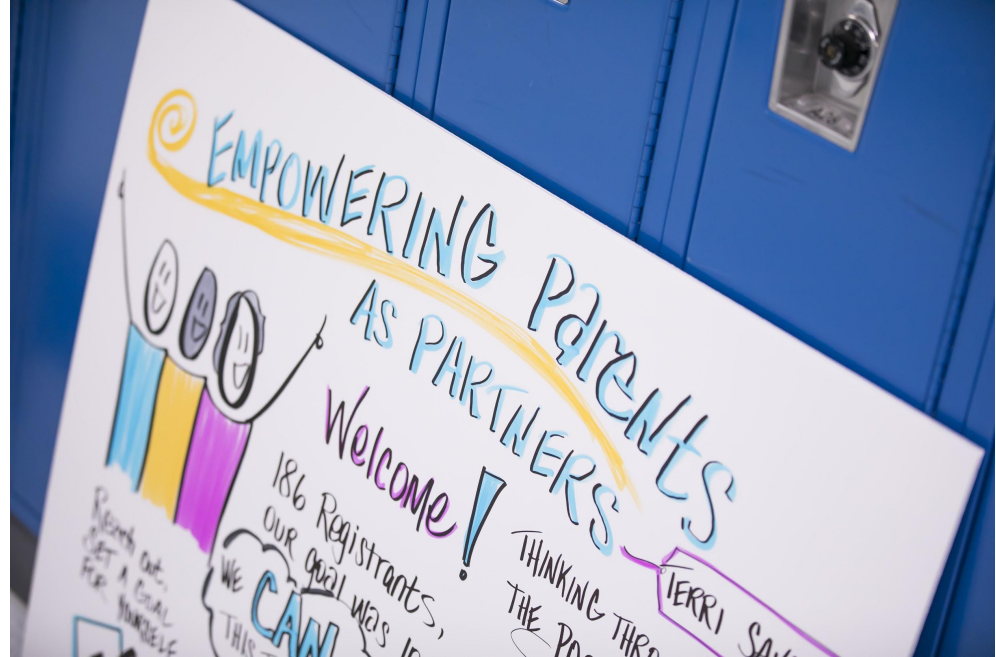 EMPOWERING PARENTS
AS PARTNERS
Welcome!
186 Registrants,
our goal was
WE
CAN
THIS
Reach out,
SET A GOAL
FOR YOURSELF
THINKING
THE
TERRI